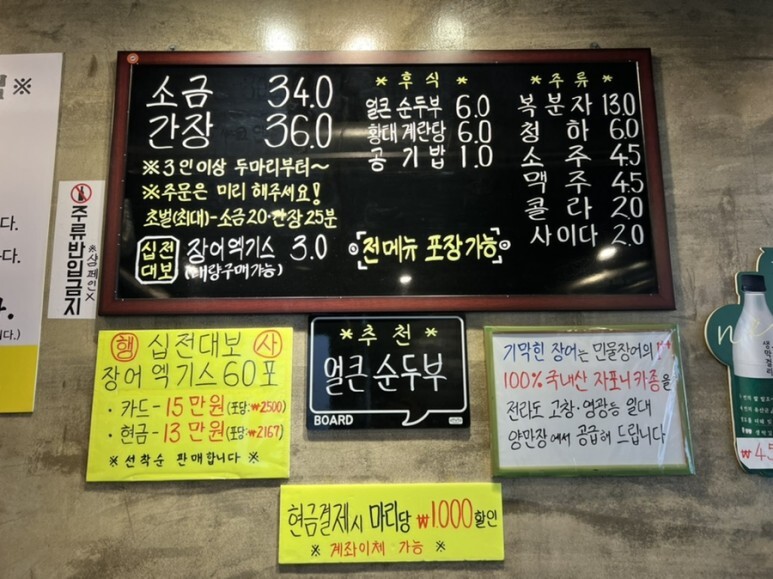 다.
다.
다.
니다.)
주류반입금지
※샴페인X
소금 34.0
간장 36.0
※3인이상 두마리부터~
※주문은 미리 해주세요!
초벌(최대)-소금20·간장25분
십전대보 장어엑기스 3.0
(대량구매가능)
*후식*
얼큰 순두부 6.0
황태계란탕 6.0
공기밥 1.0
전메뉴 포장가능
*주류*
복분자 13.0
청하 6.0
소주 4.5
맥주 4.5
콜라 2.0
사이다 2.0
행 십전대보 사
장어엑기스60포
·카드-15만원(포당:₩2500)
·현금-13만원(포당:₩2167)
※선착순 판매합니다※
*추천*
얼큰 순두부
BOARD
기막힌 장어는 민물장어의
100%국내산 자포니카종을
전라도 고창·영광등 일대
양만장에서 공급해 드립니다
현금결제시 마리당 ₩1.000할인
※ 계좌이체 가능 ※
생막걸리